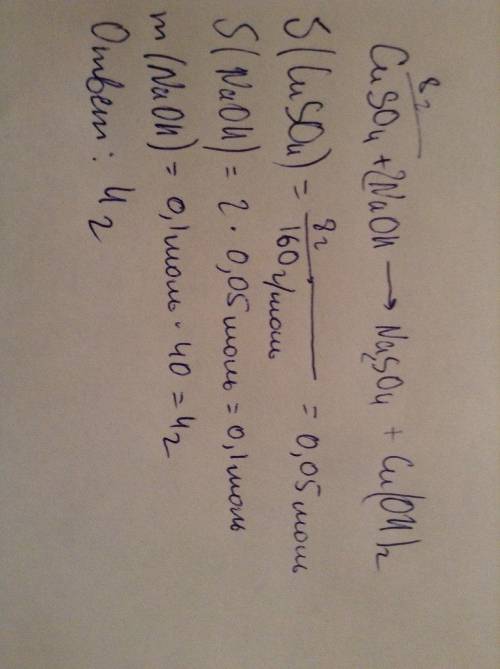 8г
CuSO₄ + 2NaOH → Na₂SO₄ + Cu(OH)₂
S(CuSO₄) = 8г / 160г/моль = 0,05 моль
S(NaOH) = 2 · 0,05 моль = 0,1 моль
m(NaOH) = 0,1 моль · 40 = 4г
Ответ: 4г